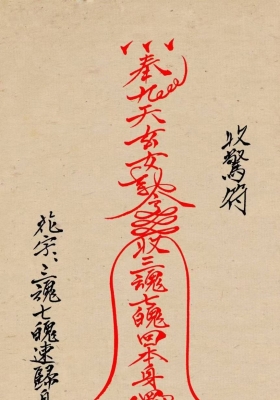 收驚符
奉九天玄女敕令收三魂七魄回本身
三魂七魄速歸身